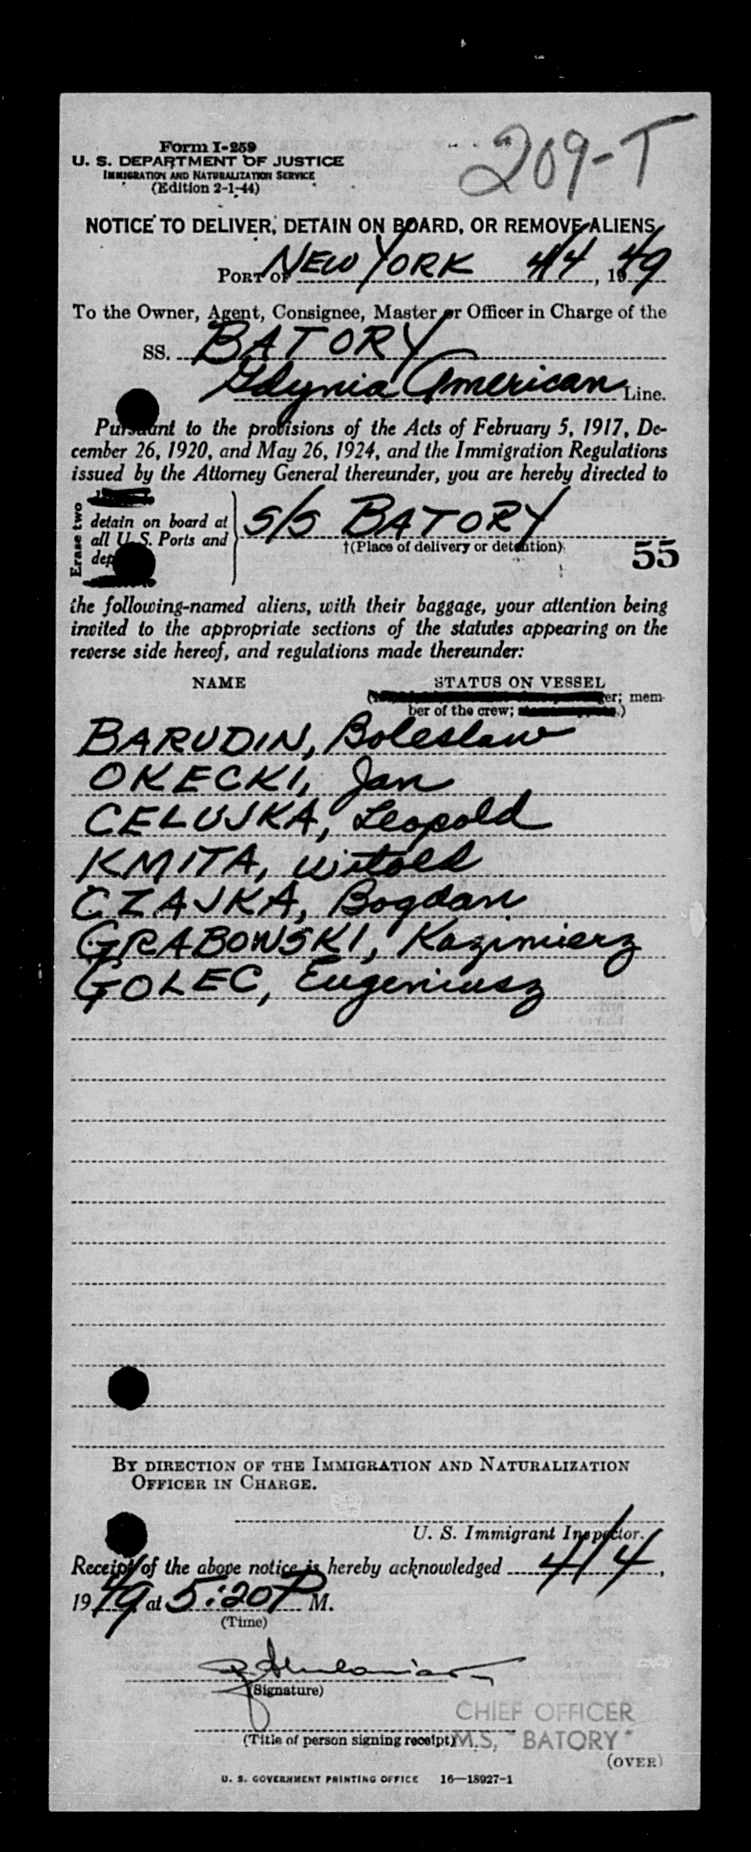 Form I-259
209-T
U. S. DEPARTMENT OF JUSTICE
IMMIGRATION AND NATURALIZATION SERVICE
(Edition 2-1-44)
NOTICE TO DELIVER, DETAIN ON BOARD, OR REMOVE ALIENS
PORT OF NEW YORK 4/4, 1949
To the Owner, Agent, Consignee, Master or Officer in Charge of the
SS. BATORY
Gdynia American Line.
Pursuant to the provisions of the Acts of February 5, 1917, De-
cember 26, 1920, and May 26, 1924, and the Immigration Regulations
issued by the Attorney General thereunder, you are hereby directed to
Erase two
detain on board at
all U. S. Ports and
S/S BATORY
†(Place of delivery or detention)
55
the following-named aliens, with their baggage, your attention being
invited to the appropriate sections of the statutes appearing on the
reverse side hereof, and regulations made thereunder:
NAME STATUS ON VESSEL
er; mem-
ber of the crew; .)
BARUDIN, Boleslaw
OKECKI, Jan
CELUJKA, Leopold
KMITA, Witold
CZAJKA, Bogdan
GRABOWSKI, Kazimierz
GOLEC, Eugeniusz
BY DIRECTION OF THE IMMIGRATION AND NATURALIZATION
OFFICER IN CHARGE.
U. S. Immigrant Inspector.
Receipt of the above notice is hereby acknowledged 4/4,
1949 at 5:20 P M.
(Time)
(Signature)
CHIEF OFFICER
(Title of person signing receipt) M.S. "BATORY"
(OVER)
U. S. GOVERNMENT PRINTING OFFICE 16—18927-1